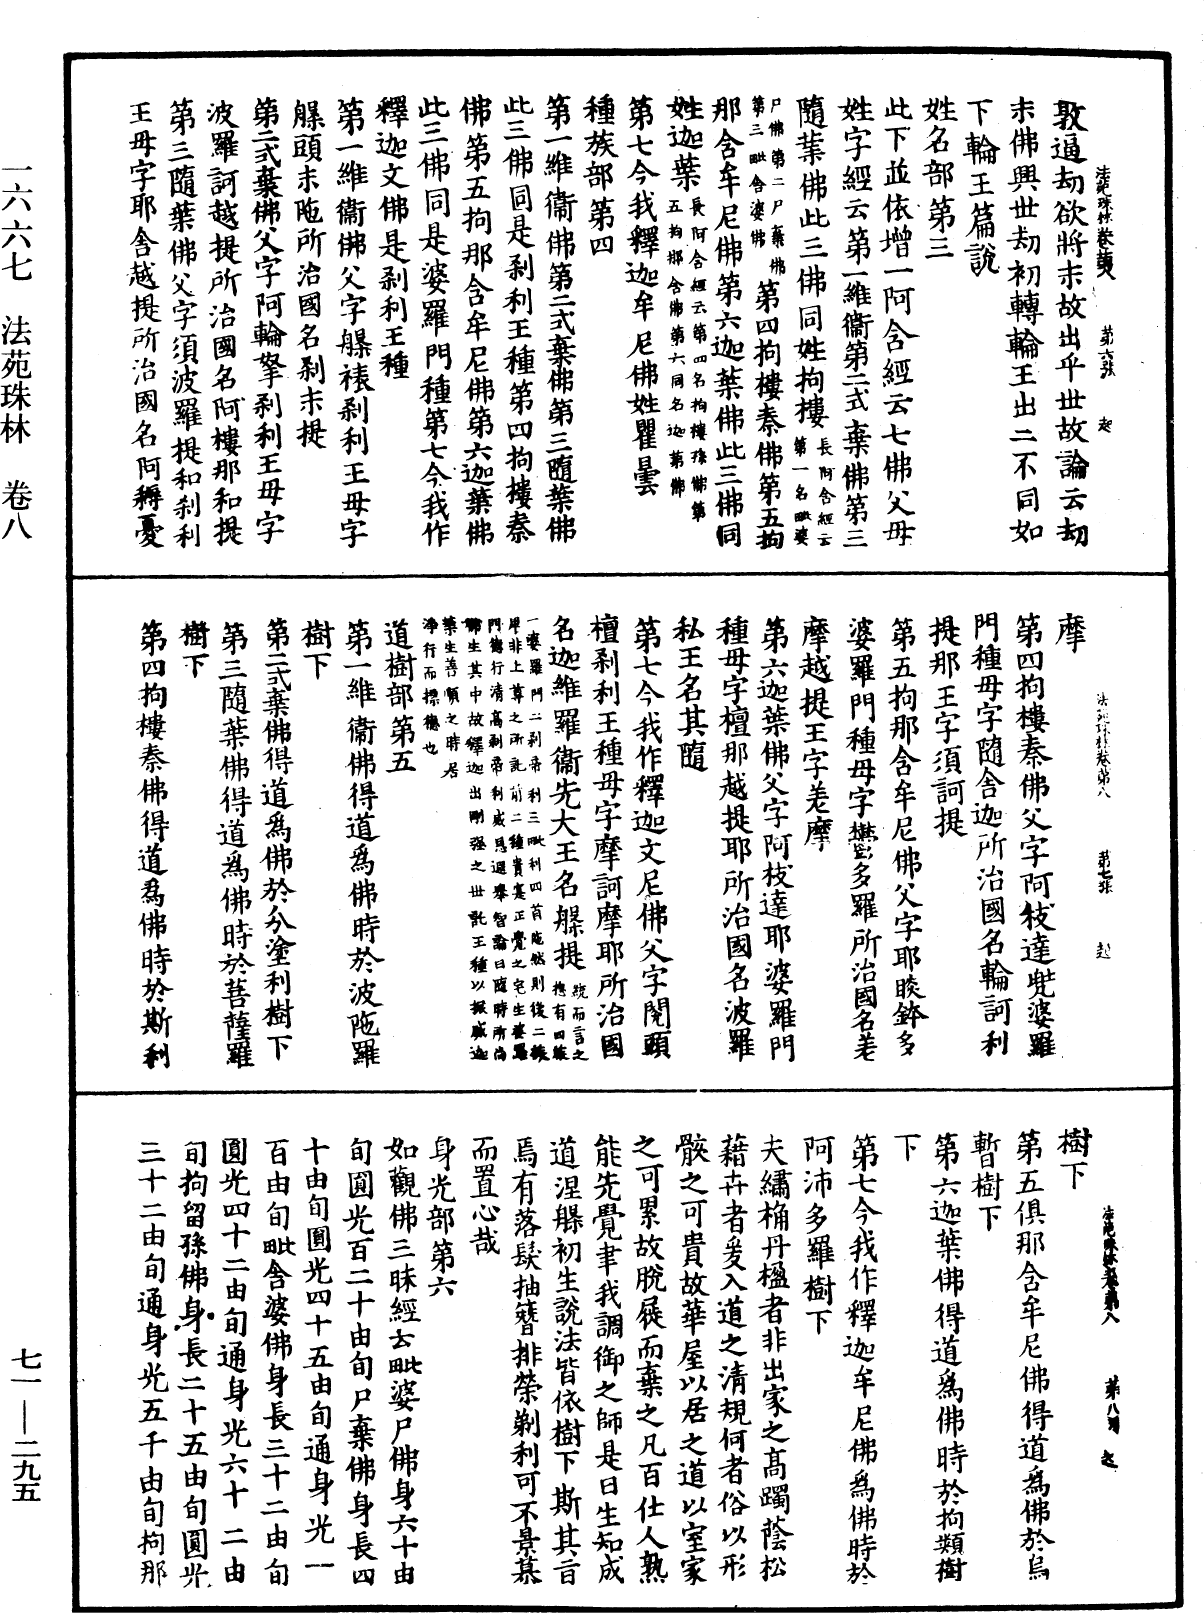 一六六七　法苑珠林　卷八
七一—二九五
法苑珠林卷第八　第六張　起
敦逼劫欲將末故出乎世故論云劫
末佛興世劫初轉輪王出二不同如
下輪王篇說
姓名部第三
此下並依增一阿含經云七佛父母
姓字經云第一維衞第二式棄佛第三
隨葉佛此三佛同姓拘樓長阿含經云第一名毗婆
尸佛第二尸棄佛第三毗舍婆佛第四拘樓秦佛第五拘
那含牟尼佛第六迦葉佛此三佛同
姓迦葉長阿含經云第四名拘樓孫佛第五拘那含佛第六同名迦葉佛
第七今我釋迦牟尼佛姓瞿曇
種族部第四
第一維衞佛第二式棄佛第三隨葉佛
此三佛同是剎利王種第四拘樓秦
佛第五拘那含牟尼佛第六迦葉佛
此三佛同是婆羅門種第七今我作
釋迦文佛是剎利王種
第一維衞佛父字槃裱剎利王母字
槃頭末陁所治國名剎末提
第二式棄佛父字阿輪拏剎利王母字
波羅訶越提所治國名阿樓那和提
第三隨葉佛父字須波羅提和剎利
王母字耶舍越提所治國名阿耨憂
摩
法苑珠林卷第八　第七張　起
第四拘樓秦佛父字阿枝達兜婆羅
門種母字隨舍迦所治國名輪訶利
提那王字須訶提
第五拘那含牟尼佛父字耶睒鉢多
婆羅門種母字鬱多羅所治國名差
摩越提王字差摩
第六迦葉佛父字阿枝達耶婆羅門
種母字檀那越提耶所治國名波羅
私王名其隨
第七今我作釋迦文尼佛父字閱頭
檀剎利王種母字摩訶摩耶所治國
名迦維羅衞先大王名槃提統而言之揔有四族
一婆羅門二剎帝利三毗利四首陁然則後二族
卑非上尊之所託前二種貴寔正覺之宅生婆羅
門德行清高剎帝利威恩遐舉智論曰隨時所尚
佛生其中故釋迦出剛強之世託王種以振威迦
葉生善順之時居
淨行而標德也
道樹部第五
第一維衞佛得道爲佛時於波陁羅
樹下
第二式棄佛得道爲佛於分塗利樹下
第三隨葉佛得道爲佛時於菩薩羅
樹下
第四拘樓秦佛得道爲佛時於斯利
樹下
法苑珠林卷第八　第八張　起
第五俱那含牟尼佛得道爲佛於烏
暫樹下
第六迦葉佛得道爲佛時於拘類樹
下
第七今我作釋迦牟尼佛爲佛時於
阿沛多羅樹下
夫繡桷丹楹者非出家之髙躅蔭松
藉卉者爰入道之清規何者俗以形
骸之可貴故華屋以居之道以室家
之可累故脫屣而棄之凡百仕人熟
能先覺聿我調御之師是日生知成
道涅槃初生說法皆依樹下斯其旨
焉有落髮抽簪排榮剃利可不景慕
而置心哉
身光部第六
如觀佛三昧經云毗婆尸佛身六十由
旬圓光百二十由旬尸棄佛身長四
十由旬圓光四十五由旬通身光一
百由旬毗舍婆佛身長三十二由旬
圓光四十二由旬通身光六十二由
旬拘留孫佛身長二十五由旬圓光
三十二由旬通身光五千由旬拘那